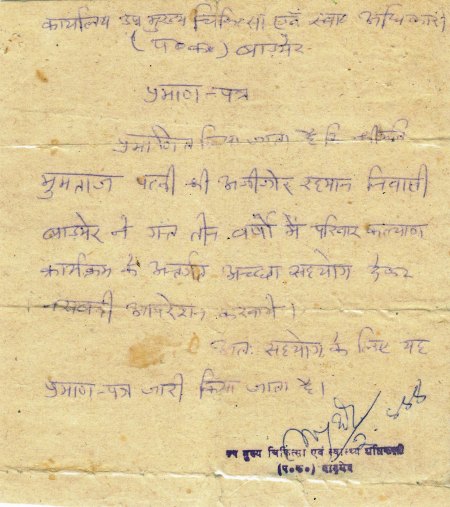 कार्यालय उप मुख्य चिकित्सा एवं स्वा० अधिकारी
(प०क०) बाड़मेर
प्रमाण-पत्र
प्रमाणित किया जाता है कि श्रीमति
मुमताज पत्नी श्री अजीजोर रहमान निवासी
बाड़मेर ने गत तीन वर्षों में परिवार कल्याण
कार्यक्रम के अन्तर्गत अच्छा सहयोग देकर
नसबन्दी आपरेशन करवाये।
अतः सहयोग के लिए यह
प्रमाण-पत्र जारी किया जाता है।
उप मुख्य चिकित्सा एवं स्वास्थ्य अधिकारी
(प०क०) बाड़मेर